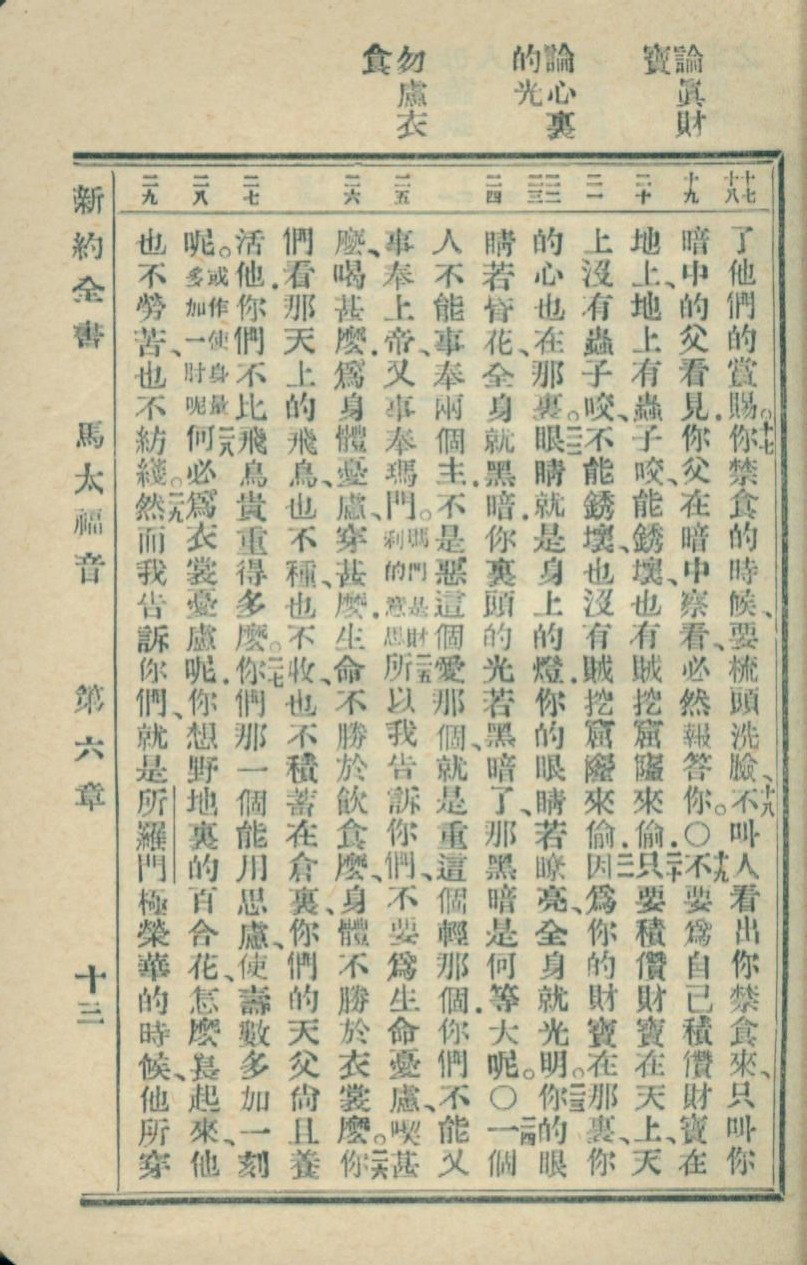 論眞財
寶
論心裏
的光
勿慮衣
食
十七
十八
十九
二十
二一
二二
二三
二四
二五
二六
二七
二八
二九
了他們的賞賜。十七你禁食的時候、要梳頭洗臉、十八不叫人看出你禁食來、只叫你
暗中的父看見．你父在暗中察看、必然報答你。○十九不要爲自己積儹財寶在
地上、地上有蟲子咬、能銹壞、也有賊挖窟窿來偷．二十只要積儹財寶在天上、天
上沒有蟲子咬、不能銹壞、也沒有賊挖窟窿來偷．二一因爲你的財寶在那裏、你
的心也在那裏。二二眼睛就是身上的燈．你的眼睛若瞭亮、全身就光明。二三你的眼
睛若昏花、全身就黑暗．你裏頭的光若黑暗了、那黑暗是何等大呢。○二四一個
人不能事奉兩個主．不是惡這個愛那個、就是重這個輕那個．你們不能又
事奉上帝、又事奉瑪門。瑪門是財利的意思二五所以我告訴你們、不要爲生命憂慮、喫甚
麽、喝甚麽．爲身體憂慮、穿甚麽．生命不勝於飲食麽、身體不勝於衣裳麽。二六你
們看那天上的飛鳥、也不種、也不收、也不積蓄在倉裏、你們的天父尙且養
活他．你們不比飛鳥貴重得多麽。二七你們那一個能用思慮、使壽數多加一刻
呢。或作使身量多加一肘呢二八何必爲衣裳憂慮呢．你想野地裏的百合花、怎麽長起來、他
也不勞苦、也不紡綫。二九然而我告訴你們、就是所羅門極榮華的時候、他所穿
新約全書　馬太福音　第六章　十三